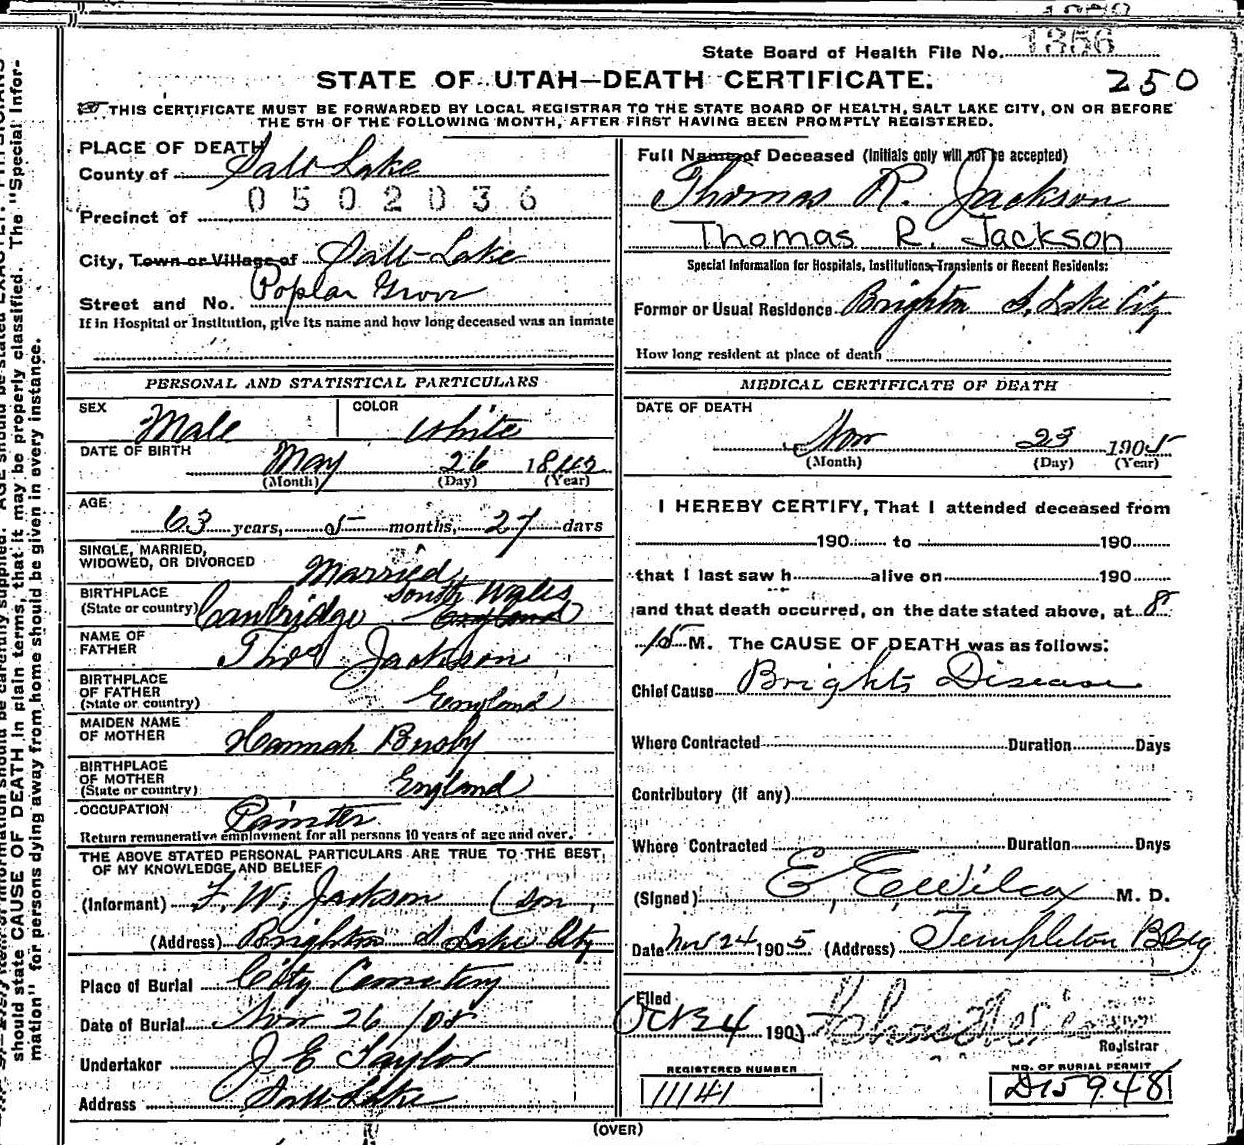 State Board of Health File No. 1356
STATE OF UTAH—DEATH CERTIFICATE.
250
THIS CERTIFICATE MUST BE FORWARDED BY LOCAL REGISTRAR TO THE STATE BOARD OF HEALTH, SALT LAKE CITY, ON OR BEFORE
THE 5TH OF THE FOLLOWING MONTH, AFTER FIRST HAVING BEEN PROMPTLY REGISTERED.
PLACE OF DEATH
County of Salt Lake
0502036
Precinct of
City, Town or Village of Salt Lake
Street and No. Poplar Grove
If in Hospital or Institution, give its name and how long deceased was an inmate
Full Name of Deceased (Initials only will not be accepted)
Thomas R. Jackson
Thomas R. Jackson
Special Information for Hospitals, Institutions, Transients or Recent Residents:
Former or Usual Residence Brighton S. Lake City
How long resident at place of death
PERSONAL AND STATISTICAL PARTICULARS
SEX Male COLOR White
DATE OF BIRTH May 26 1842
(Month) (Day) (Year)
AGE 63 years, 5 months, 27 days
SINGLE, MARRIED,
WIDOWED, OR DIVORCED Married
BIRTHPLACE South Wales
(State or country) Cambridge England
NAME OF
FATHER Thos Jackson
BIRTHPLACE
OF FATHER
(State or country) England
MAIDEN NAME
OF MOTHER Hannah Busby
BIRTHPLACE
OF MOTHER
(State or country) England
OCCUPATION Painter
Return remunerative employment for all persons 10 years of age and over.
THE ABOVE STATED PERSONAL PARTICULARS ARE TRUE TO THE BEST
OF MY KNOWLEDGE AND BELIEF
(Informant) F. W. Jackson (son
(Address) Brighton S Lake City
Place of Burial City Cemetery
Date of Burial Nov 26 / 05
Undertaker J E Taylor
Address Salt Lake
MEDICAL CERTIFICATE OF DEATH
DATE OF DEATH
Nov 23 1905
(Month) (Day) (Year)
I HEREBY CERTIFY, That I attended deceased from
190 to 190
that I last saw h alive on 190
and that death occurred, on the date stated above, at 8
15 M. The CAUSE OF DEATH was as follows:
Chief Cause Brights Disease
Where Contracted Duration Days
Contributory (if any)
Where Contracted Duration Days
(Signed) E. E. Wilcox M. D.
Date Nov 24 1905 (Address) Templeton Bldg
Filed
24 190
Registrar
REGISTERED NUMBER
11141
NO. OF BURIAL PERMIT
D15948
(OVER)
should state CAUSE OF DEATH in plain terms, that it may be properly classified. The "Special Infor-
mation" for persons dying away from home should be given in every instance.